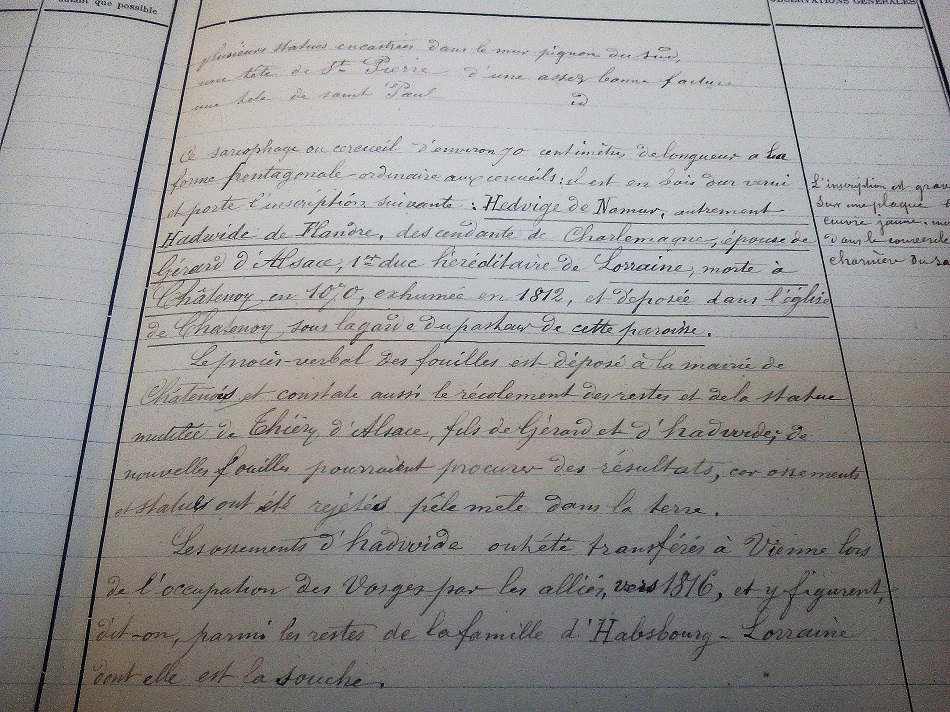 autant que possible
OBSERVATIONS GÉNÉRALES
plusieurs statues encastrées dans le mur pignon du sud,
une tête de St Pierre d'une assez bonne facture
une tête de saint Paul id
Ce sarcophage ou cercueil d'environ 70 centimètres de longueur a la
forme pentagonale ordinaire aux cercueils: il est en bois dur verni
et porte l'inscription suivante : Hedvige de Namur, autrement
Hadwide de Flandre, descendante de Charlemagne, épouse de
Gérard d'Alsace, 1er duc héréditaire de Lorraine, morte à
Châtenoy en 1070, exhumée en 1812, et déposée dans l'église
de Chatenoy sous la garde du pasteur de cette paroisse.
Le procès-verbal des fouilles est déposé à la mairie de
Chatenois et constate aussi le récolement des restes et de la statue
mutilée de Thiéry d'Alsace, fils de Gérard et d'hadwide; de
nouvelles fouilles pourraient procurer des résultats, car ossements
et statues ont été rejétés pêle mêle dans la terre.
Les ossements d'hadwide ont été transférés à Vienne lors
de l'occupation des Vosges par les alliés, vers 1816, et y figurent,
dit-on, parmi les restes de la famille d'Habsbourg-Lorraine
dont elle est la souche.
L'inscription est grav
sur une plaque
cuivre jaune
dans le couvercle
charnière du sa